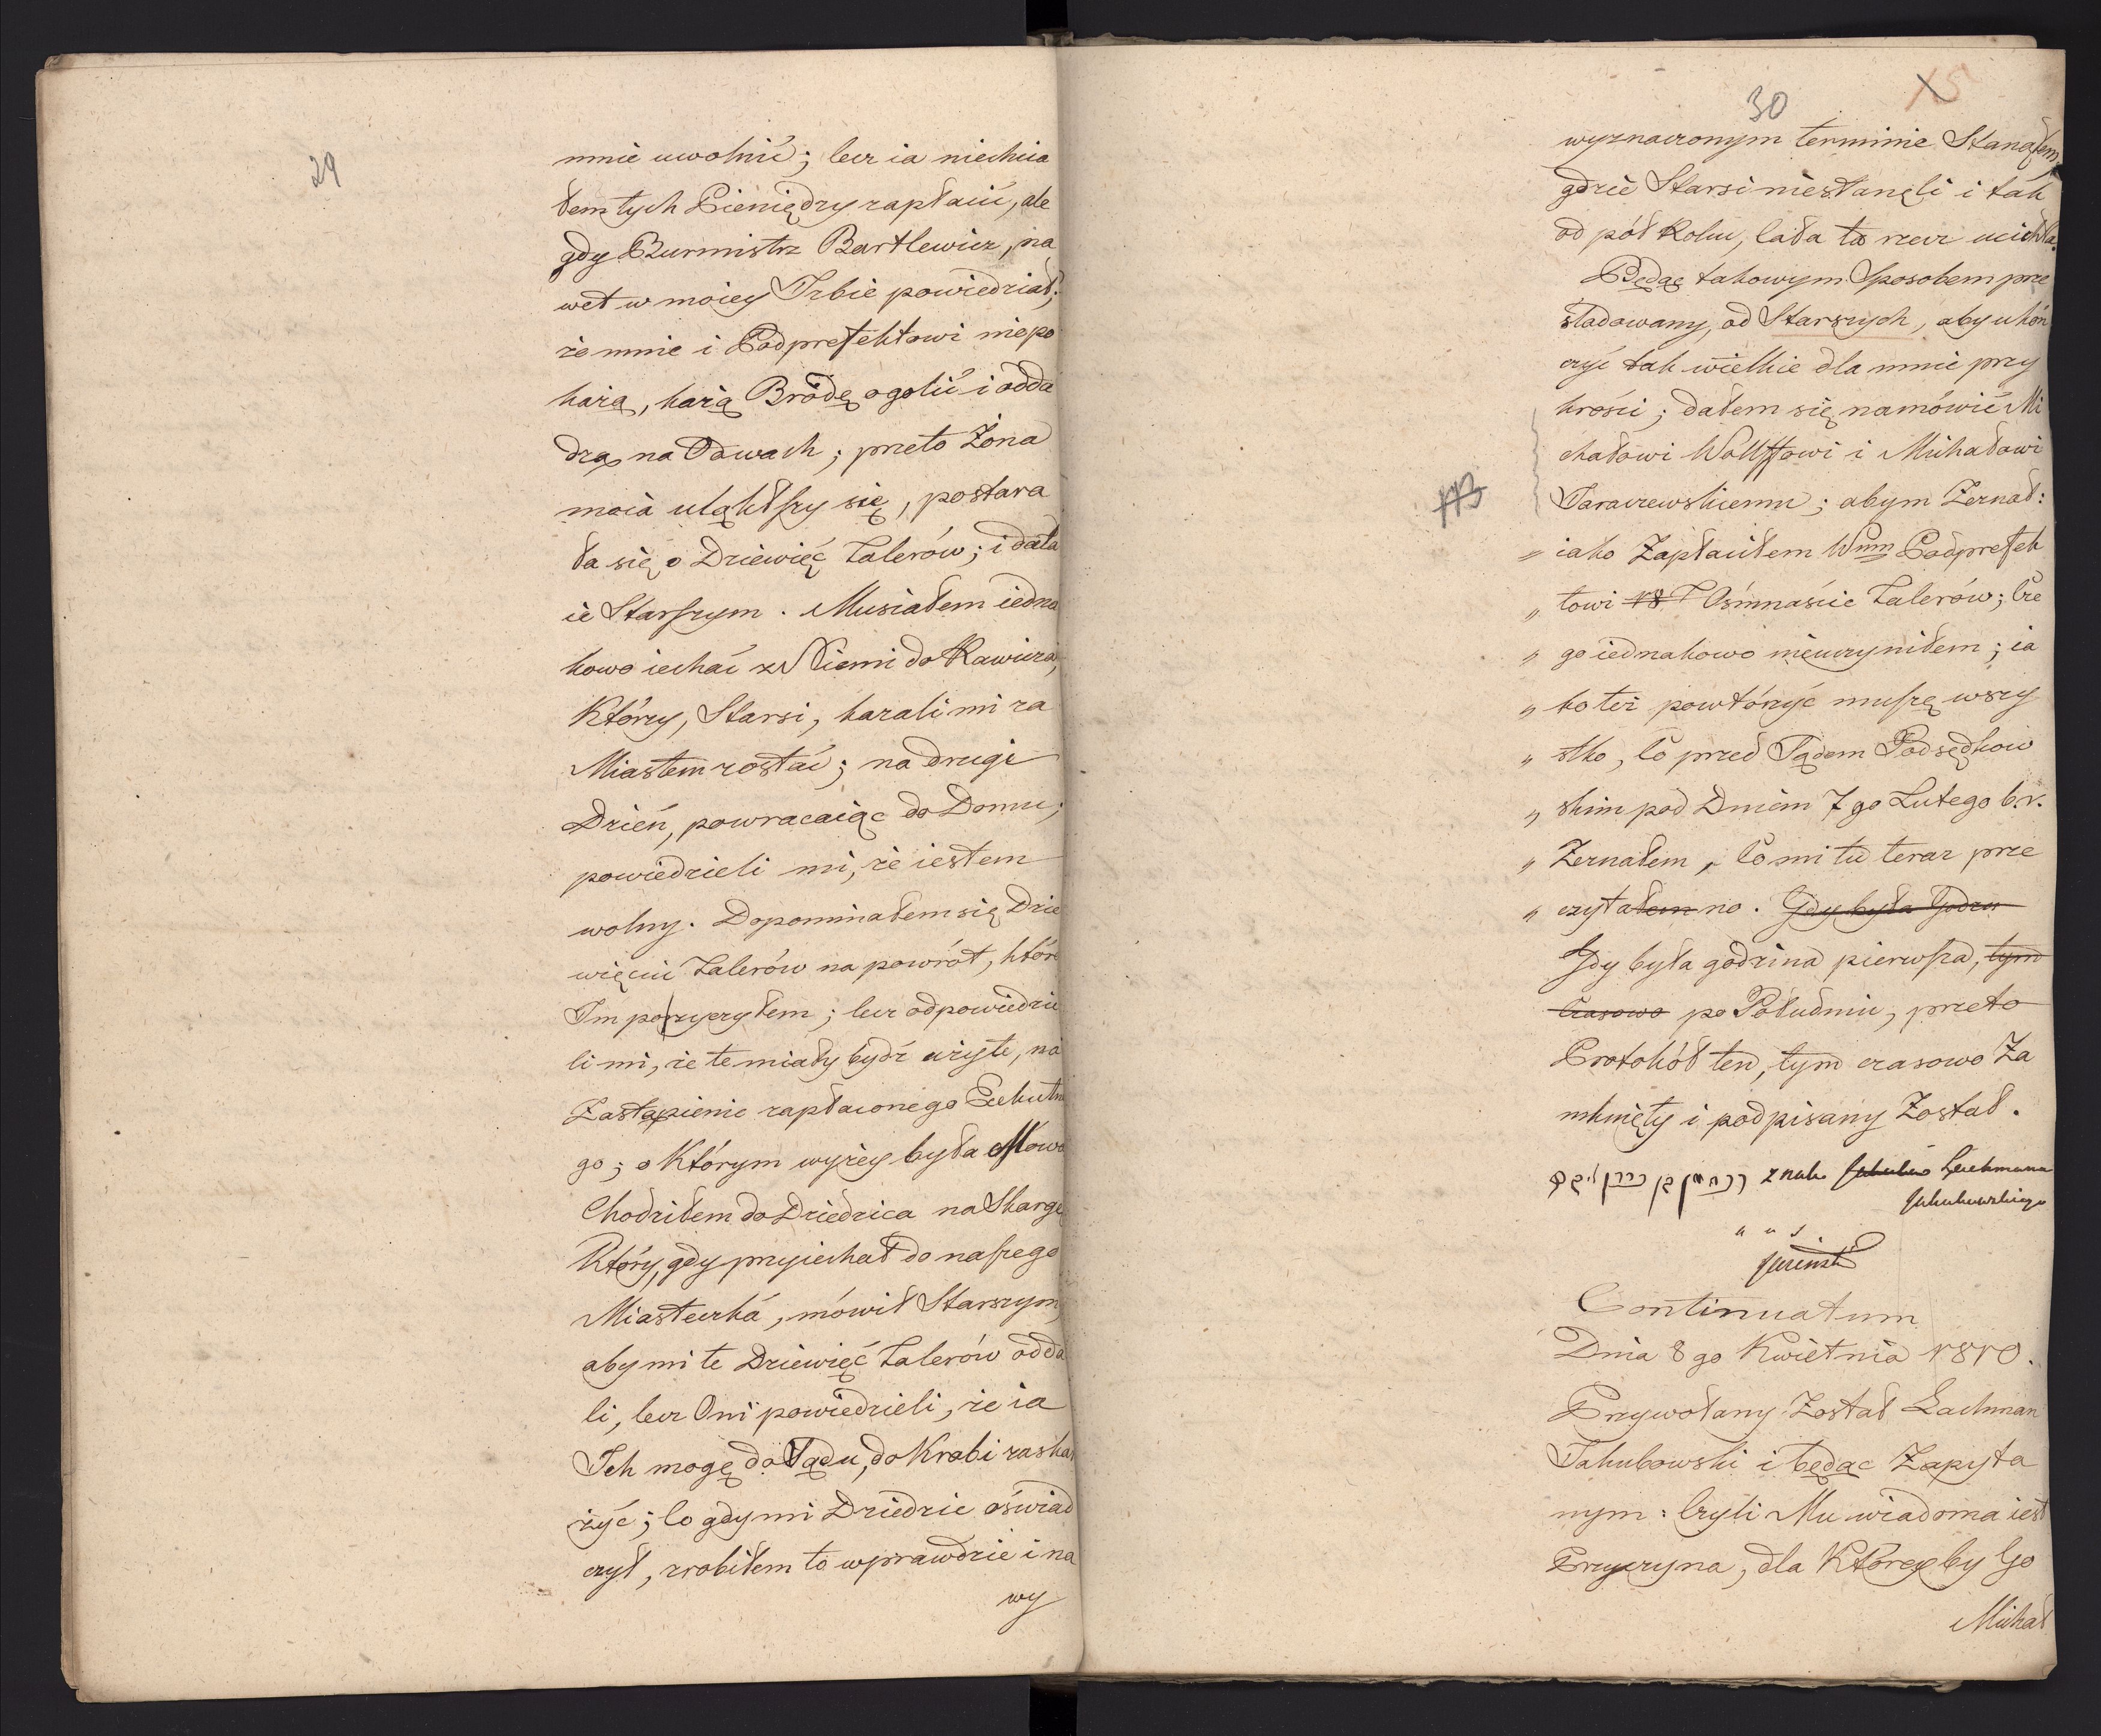 29
mnie uwolnić; lecz ia niechcia
łem tych Pieniędzy zapłacić, ale
gdy Burmistrz Bartlewicz, na
wet w moiey Izbie powiedział;
że mnie i Podprefektowi niepo
każą, każą Brodę ogolić i odda
dzą na Odwach; przeto Żona
moia ulękłszy się, postara
ła się o Dziewięć Talerów; i dała
ie Starszym. Musiałem iedna
kowo iechać z Niemi do Rawicza,
Którzy, Starsi, kazali mi za
Miastem zostać; na drugi
Dzień, powracaiąc do Domu;
powiedzieli mi, że iestem
wolny. Dopominałem się Dzie
więciu Talerów na powrót, które
Im pożyczyłem; lecz odpowiedzie
li mi, że te miały bydź użyte, na
Zastąpienie zapłaconego Exekutne
go; o Którym wyżey była Mowa
Chodziłem do Dziedzica na Skargę
Który, gdy przyiechał do naszego
Miasteczká, mówił Starszym,
aby mi te Dziewięć Talerów odda
li, lecz Oni powiedzieli, że ia
Ich mogę do Sądu, do Krobi zaskar
żyć; Co gdy mi Dziedzic oświad
czył, zrobiłem to wprawdzie i na
wy
30
15
wyznaczonym terminie Stanąłem,
gdzie Starsi niestanęli i tak
od pół Roku, cała ta rzecz ucichła.
Będąc takowym Sposobem prze
śladowany, od Starszych, aby ukoń
czyć tak wielkie dla mnie przy
krości; dałem się namówić Mi
chałowi Wolffowi i Michałowi
Taraczewskiemu; abym Zeznał:
„ iako Zapłaciłem Wmu Podprefek
„ towi 18 T Ośmnaście Talerów; Cze
„ go iednakowo nieuczyniłem; ia
„ ko też powtórzyć muszę wszy
„ stko, Co przed Sądem Podsędkow
„ skim pod Dniem 7go Lutego b.r.
„ Zeznałem, Co mi tu teraz prze
„ czytałem no. Gdy była Godzi
Gdy była godzina pierwsza, tym
Czasowo po Południu, przeto
Protokół ten, tym czasowo Za
mknięty i podpisany Został.
znak Jakuba Lachmana
Jakubowskiego
" u s
Continuatum
Dnia 8go Kwietnia 1810.
Przywołany Został Lachman
Jakubowski i będąc Zapyta
nym: Czyli Mu wiadoma iest
Przyczyna, dla Któreyby Go
Michał